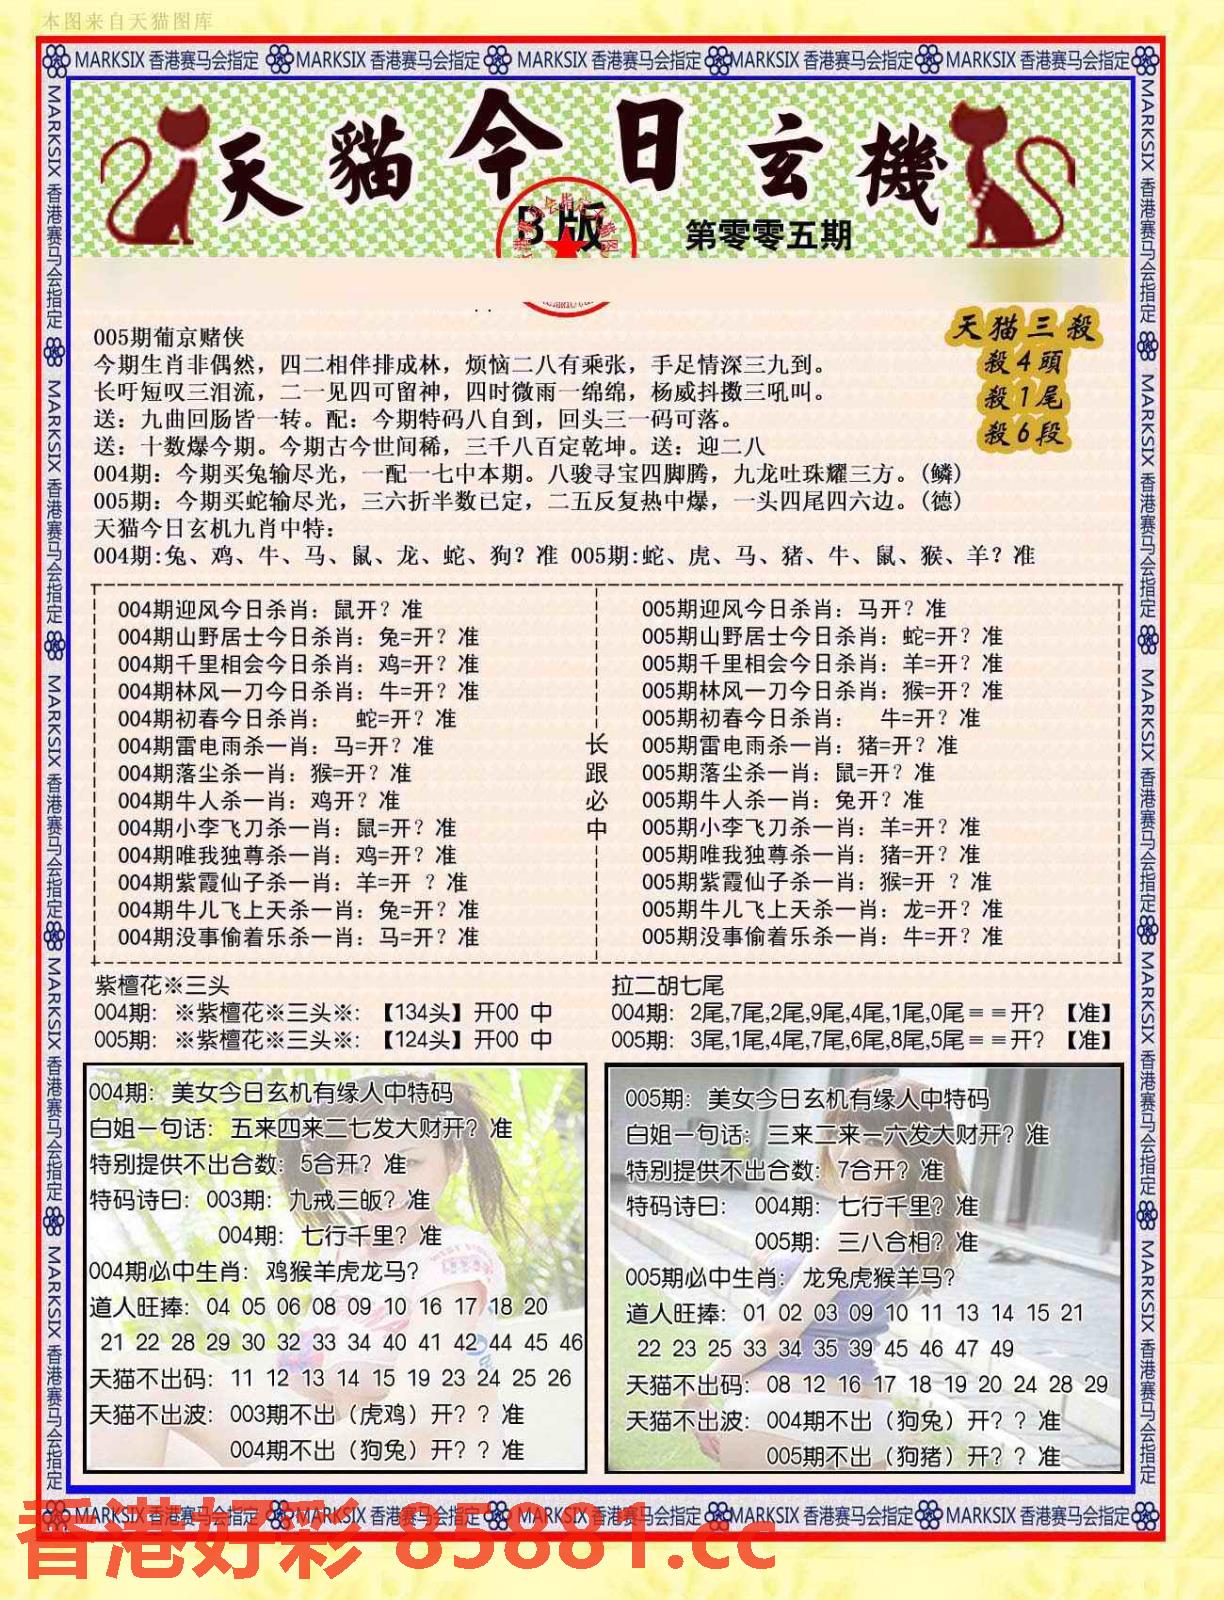 本图来自天猫图库
MARKSIX 香港赛马会指定 MARKSIX 香港赛马会指定 MARKSIX 香港赛马会指定 MARKSIX 香港赛马会指定 MARKSIX 香港赛马会指定
天貓今日玄機
B版
第零零五期
天猫三殺
殺4頭
殺1尾
殺6段
005期葡京赌侠
今期生肖非偶然，四二相伴排成林，烦恼二八有乘张，手足情深三九到。
长吁短叹三泪流，二一见四可留神，四时微雨一绵绵，杨威抖擞三吼叫。
送：九曲回肠皆一转。配：今期特码八自到，回头三一码可落。
送：十数爆今期。今期古今世间稀，三千八百定乾坤。送：迎二八
004期：今期买兔输尽光，一配一七中本期。八骏寻宝四脚腾，九龙吐珠耀三方。(鳞)
005期：今期买蛇输尽光，三六折半数已定，二五反复热中爆，一头四尾四六边。(德)
天猫今日玄机九肖中特：
004期:兔、鸡、牛、马、鼠、龙、蛇、狗？准 005期:蛇、虎、马、猪、牛、鼠、猴、羊？准
004期迎风今日杀肖：鼠开？准
004期山野居士今日杀肖：兔=开？准
004期千里相会今日杀肖：鸡=开？准
004期林风一刀今日杀肖：牛=开？准
004期初春今日杀肖： 蛇=开？准
004期雷电雨杀一肖：马=开？准
004期落尘杀一肖：猴=开？准
004期牛人杀一肖：鸡开？准
004期小李飞刀杀一肖：鼠=开？准
004期唯我独尊杀一肖：鸡=开？准
004期紫霞仙子杀一肖：羊=开 ？准
004期牛儿飞上天杀一肖：兔=开？准
004期没事偷着乐杀一肖：马=开？准
长跟必中
005期迎风今日杀肖：马开？准
005期山野居士今日杀肖：蛇=开？准
005期千里相会今日杀肖：羊=开？准
005期林风一刀今日杀肖：猴=开？准
005期初春今日杀肖： 牛=开？准
005期雷电雨杀一肖：猪=开？准
005期落尘杀一肖：鼠=开？准
005期牛人杀一肖：兔开？准
005期小李飞刀杀一肖：羊=开？准
005期唯我独尊杀一肖：猪=开？准
005期紫霞仙子杀一肖：猴=开 ？准
005期牛儿飞上天杀一肖：龙=开？准
005期没事偷着乐杀一肖：牛=开？准
紫檀花※三头
004期：※紫檀花※三头※：【134头】开00 中
005期：※紫檀花※三头※：【124头】开00 中
拉二胡七尾
004期：2尾,7尾,2尾,9尾,4尾,1尾,0尾＝＝开？【准】
005期：3尾,1尾,4尾,7尾,6尾,8尾,5尾＝＝开？【准】
004期：美女今日玄机有缘人中特码
白姐一句话：五来四来二七发大财开？准
特别提供不出合数：5合开？准
特码诗曰：003期：九戒三皈？准
004期：七行千里？准
004期必中生肖：鸡猴羊虎龙马？
道人旺捧：04 05 06 08 09 10 16 17 18 20
21 22 28 29 30 32 33 34 40 41 42 44 45 46
天猫不出码：11 12 13 14 15 19 23 24 25 26
天猫不出波：003期不出（虎鸡）开？？准
004期不出（狗兔）开？？准
005期：美女今日玄机有缘人中特码
白姐一句话：三来二来一六发大财开？准
特别提供不出合数：7合开？准
特码诗曰： 004期：七行千里？准
005期：三八合相？准
005期必中生肖：龙兔虎猴羊马？
道人旺捧：01 02 03 09 10 11 13 14 15 21
22 23 25 33 34 35 39 45 46 47 49
天猫不出码：08 12 16 17 18 19 20 24 28 29
天猫不出波：004期不出（狗兔）开？？准
005期不出（狗猪）开？？准
MARKSIX 香港赛马会指定 MARKSIX 香港赛马会指定 MARKSIX 香港赛马会指定 MARKSIX 香港赛马会指定 MARKSIX 香港赛马会指定
MARKSIX 香港赛马会指定 MARKSIX 香港赛马会指定 MARKSIX 香港赛马会指定 MARKSIX 香港赛马会指定 MARKSIX 香港赛马会指定
MARKSIX 香港赛马会指定 MARKSIX 香港赛马会指定 MARKSIX 香港赛马会指定 MARKSIX 香港赛马会指定 MARKSIX 香港赛马会指定
香港好彩 85881.cc